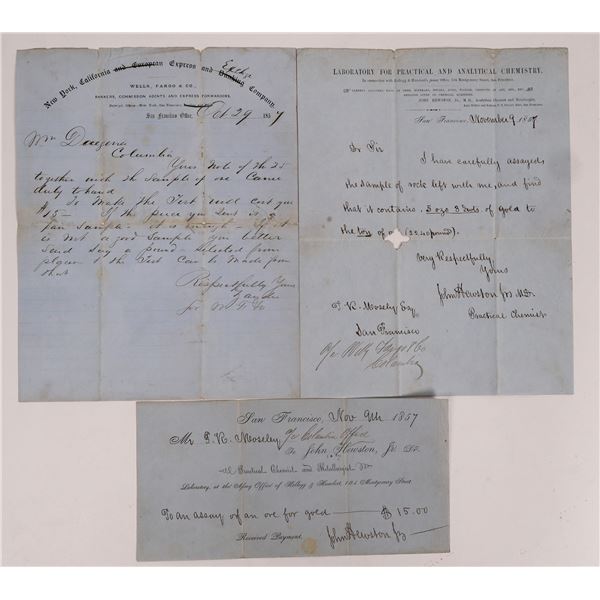 New York, California and European Express and Exchge Banking Company.
WELLS, FARGO & CO.,
BANKERS, COMMISSION AGENTS AND EXPRESS FORWARDERS.
San Francisco Office, Oct 29 1857
Mr
Columbia
Your Note of the 25
together with the Sample of ore Came
duly to hand
To Make the Test will cost you
$15 – If the piece you Sent is a
fair Sample – it is enough – If it
is Not a good Sample you better
Send Say a pound – Selected from
& the Test Can be Made from
that
Respectfully Yours
for W F & Co
LABORATORY FOR PRACTICAL AND ANALYTICAL CHEMISTRY.
In connection with Kellogg & Humbert's Assay Office, 104 Montgomery Street, San Francisco.
San Francisco, November 9 1857
Dr Sir
I have carefully assayed
the sample of rock left with me, and find
that it contains 5 ozs 3 dwts of gold to
the ton of ore (2240 pound).
Very Respectfully
Yours
John Hewston Jr M.D.
Practical Chemist
P. K. Mosely Esq
San Francisco
c/o Wells Fargo & Co
Columbia
San Francisco, Nov 9th 1857
Mr P. K. Moseley c/o Columbia Office
To John Hewston, Jr. Dr.
Practical Chemist and Metallurgist
Laboratory, at the Assay Office of Kellogg & Humbert, 104 Montgomery Street
To an assay of an ore for gold — $ 15.00
Received Payment, John Hewston Jr